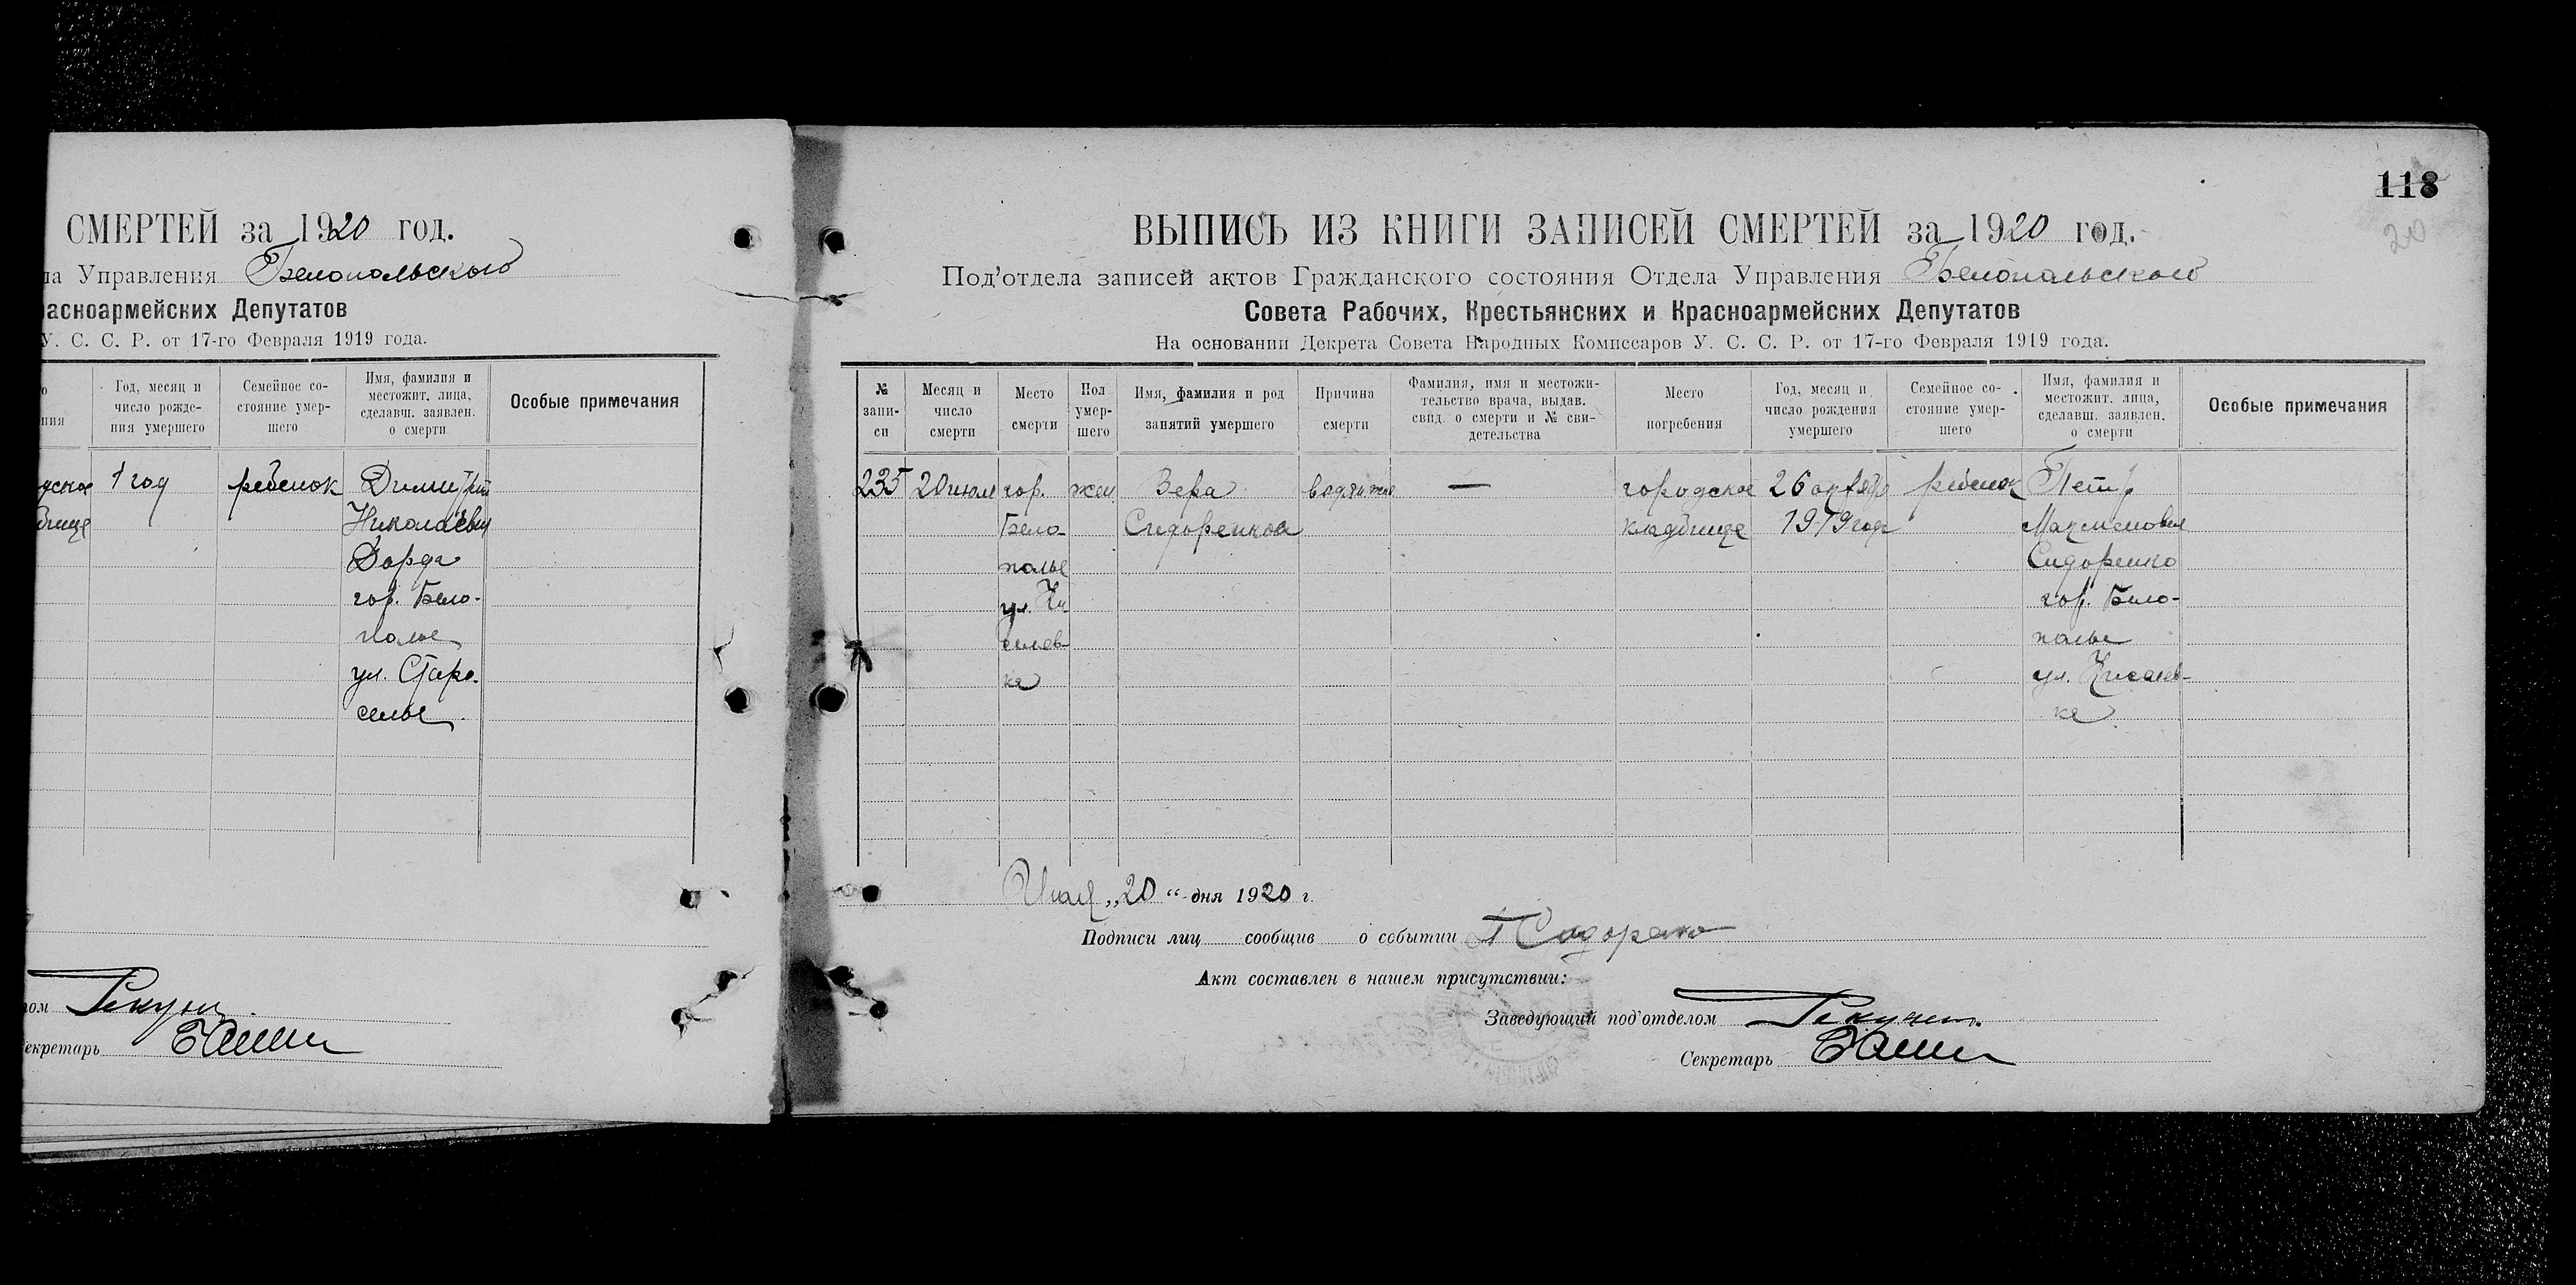 СМЕРТЕЙ за 1920 год.
ла Управления Белопольского
расноармейских Депутатов
У. С. С. Р. от 17-го Февраля 1919 года.
Год, месяц и
число рожде-
ния умершего
Семейное со-
стояние умер-
шего
Имя, фамилия и
местожит. лица,
сделавш. заявлен.
о смерти
Особые примечания
1 год
ребенок
Димитрий
Николаевич
гор. Бело-
полье
ул. Старо-
селье
Секретарь
118
20
ВЫПИСЬ ИЗ КНИГИ ЗАПИСЕЙ СМЕРТЕЙ за 1920 год.
Под'отдела записей актов Гражданского состояния Отдела Управления Белопольского
Совета Рабочих, Крестьянских и Красноармейских Депутатов
На основании Декрета Совета Народных Комиссаров У. С. С. Р. от 17-го Февраля 1919 года.
№
запи-
си
Месяц и
число
смерти
Место
смерти
Пол
умер-
шего
Имя, фамилия и род
занятий умершего
Причина
смерти
Фамилия, имя и местожи-
тельство врача, выдав.
свид. о смерти и № сви-
детельства
Место
погребения
Год, месяц и
число рождения
умершего
Семейное со-
стояние умер-
шего
Имя, фамилия и
местожит. лица,
сделавш. заявлен.
о смерти
Особые примечания
235
20 июля
гор.
Бело-
полье
ул. Ки-
селев-
ка
жен
Вера
Сидоренкова
водянка
—
городское
кладбище
26 октября
1919 года
ребенок
Петр
Максимович
Сидоренко
гор. Бело-
полье
ул. Киселев-
ка
Июля „20“ дня 1920 г.
Подписи лиц сообщив о событии П Сидоренко
Акт составлен в нашем присутствии:
Заведующий под'отделом
Секретарь